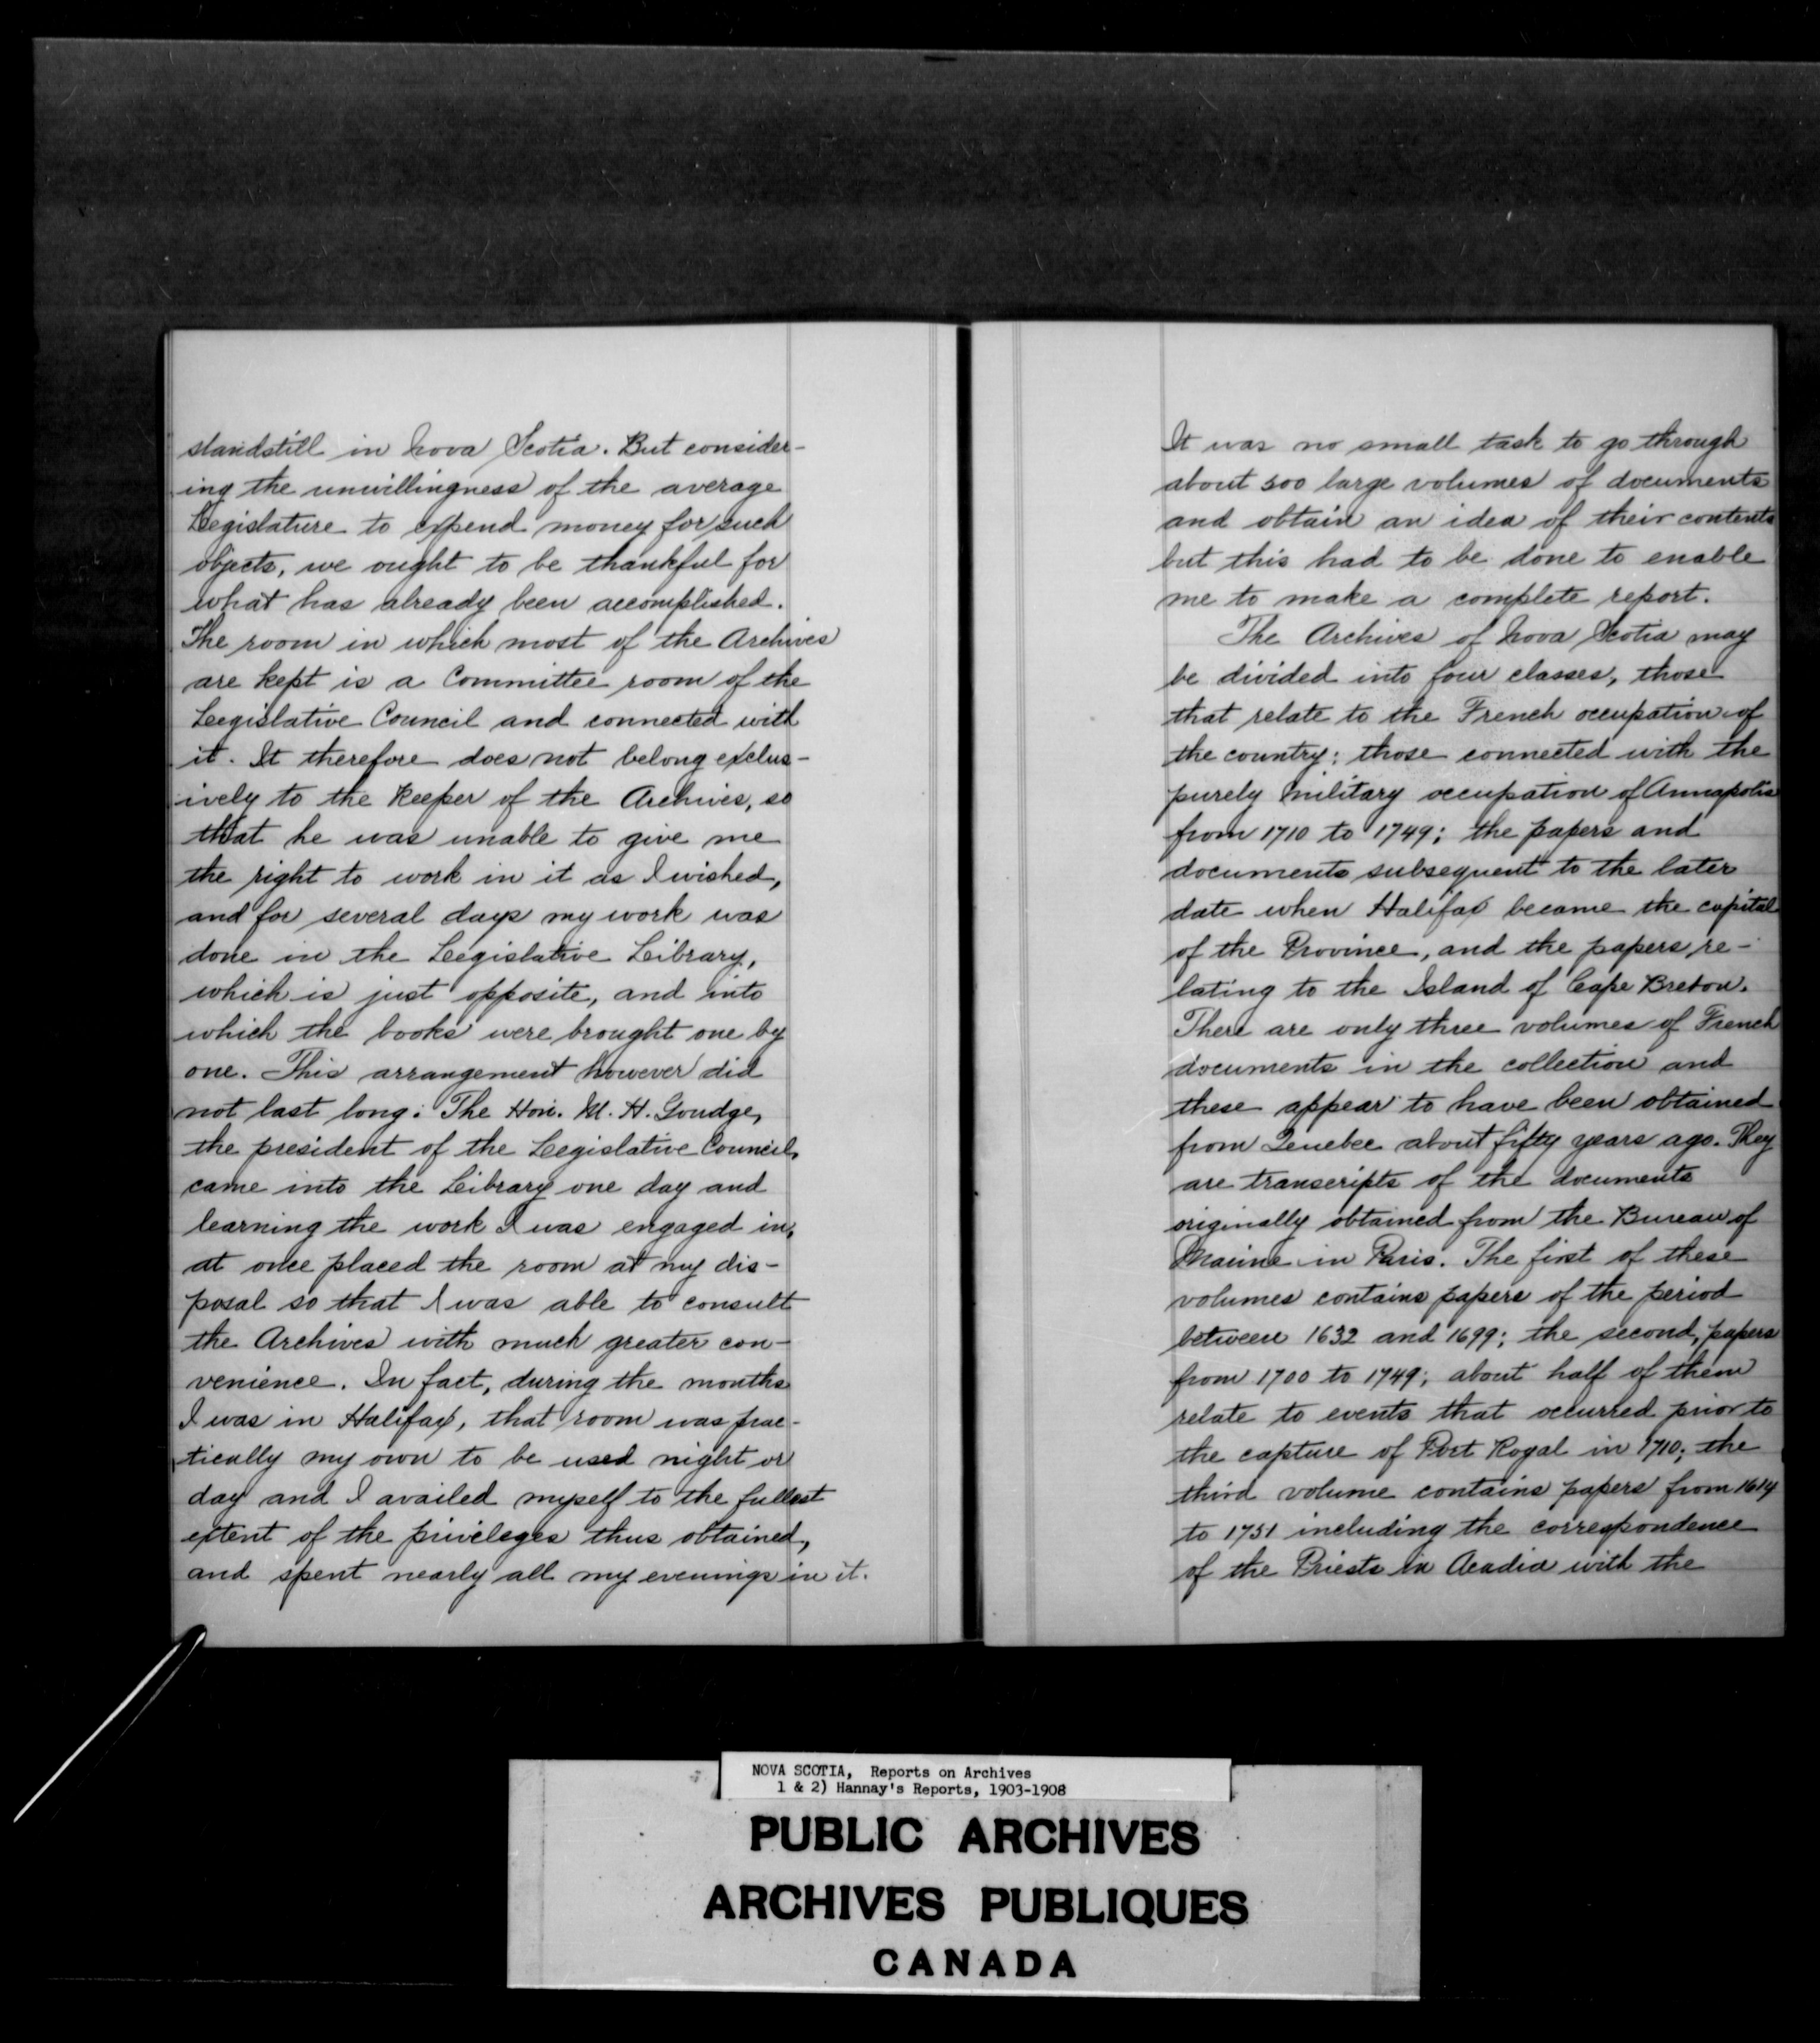 standstill in Nova Scotia. But consider-
ing the unwillingness of the average
Legislature to expend money for such
objects, we ought to be thankful for
what has already been accomplished.
The room in which most of the Archives
are kept is a Committee room of the
Legislative Council and connected with
it. It therefore does not belong exclus-
ively to the Keeper of the Archives, so
that he was unable to give me
the right to work in it as I wished,
and for several days my work was
done in the Legislative Library,
which is just opposite, and into
which the books were brought one by
one. This arrangement however did
not last long: The Hon. M. H. Goudge,
the president of the Legislative Council,
came into the Library one day and
learning the work I was engaged in,
at once placed the room at my dis-
posal so that I was able to consult
the Archives with much greater con-
venience. In fact, during the months
I was in Halifax, that room was prac-
tically my own to be used night or
day and I availed myself to the fullest
extent of the privileges thus obtained,
and spent nearly all my evenings in it.
It was no small task to go through
about 500 large volumes of documents
and obtain an idea of their contents
but this had to be done to enable
me to make a complete report.
The Archives of Nova Scotia may
be divided into four classes, those
that relate to the French occupation of
the country; those connected with the
purely military occupation of Annapolis
from 1710 to 1749; the papers and
documents subsequent to the later
date when Halifax became the capital
of the Province, and the papers re-
lating to the Island of Cape Breton.
There are only three volumes of French
documents in the collection and
these appear to have been obtained
from Quebec about fifty years ago. They
are transcripts of the documents
originally obtained from the Bureau of
Marine in Paris. The first of these
volumes contains papers of the period
between 1632 and 1699; the second, papers
from 1700 to 1749; about half of them
relate to events that occurred prior to
the capture of Port Royal in 1710; the
third volume contains papers from 1614
to 1751 including the correspondence
of the Priests in Acadia with the
NOVA SCOTIA, Reports on Archives
1 & 2) Hannay's Reports, 1903-1908
PUBLIC ARCHIVES
ARCHIVES PUBLIQUES
CANADA